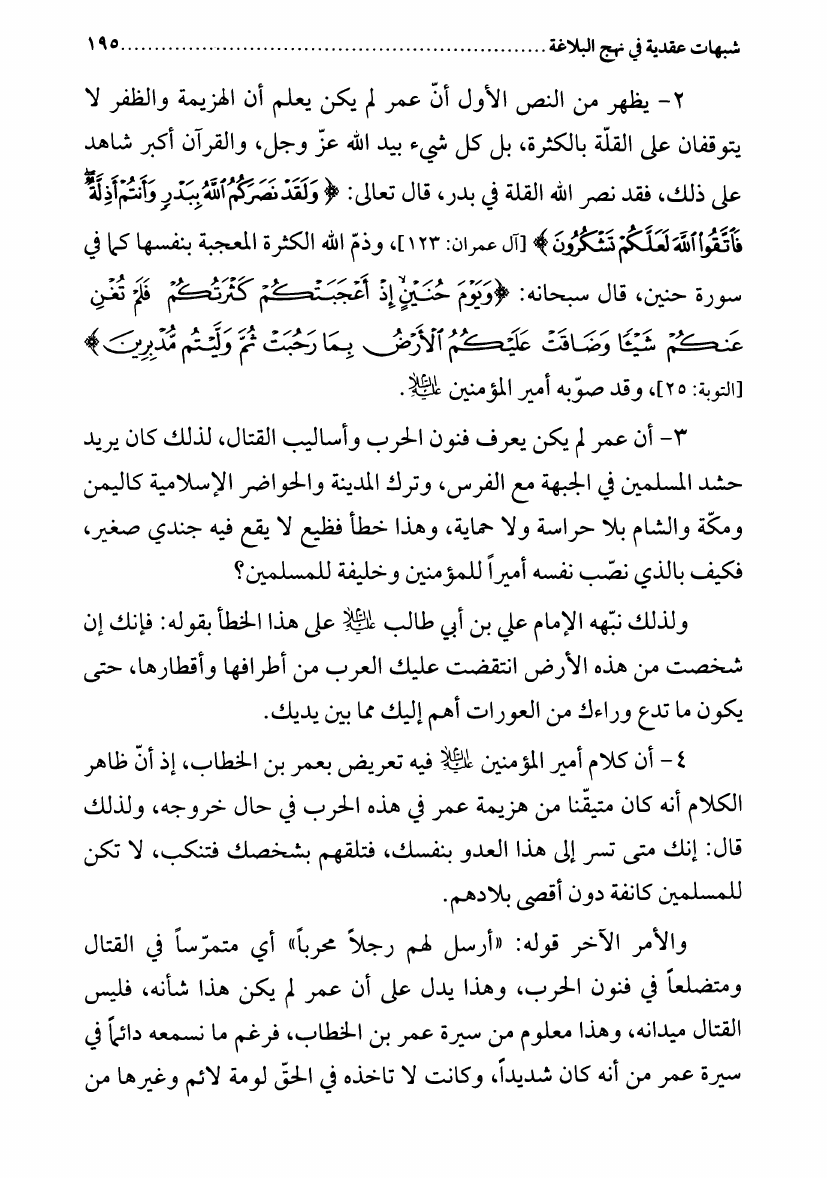 شبهات عقدية في نهج البلاغة ........................................................... ١٩٥
٢- يظهر من النص الأول أنّ عمر لم يكن يعلم أن الهزيمة والظفر لا
يتوقفان على القلّة بالكثرة، بل كل شيء بيد الله عزّ وجل، والقرآن أكبر شاهد
على ذلك، فقد نصر الله القلة في بدر، قال تعالى: ﴿وَلَقَدْ نَصَرَكُمُ ٱللَّهُ بِبَدْرٍ وَأَنتُمْ أَذِلَّةٌ
فَٱتَّقُوا۟ ٱللَّهَ لَعَلَّكُمْ تَشْكُرُونَ﴾ [آل عمران: ١٢٣]، وذمّ الله الكثرة المعجبة بنفسها كما في
سورة حنين، قال سبحانه: ﴿وَيَوْمَ حُنَيْنٍ إِذْ أَعْجَبَتْكُمْ كَثْرَتُكُمْ فَلَمْ تُغْنِ
عَنكُمْ شَيْـًٔا وَضَاقَتْ عَلَيْكُمُ ٱلْأَرْضُ بِمَا رَحُبَتْ ثُمَّ وَلَّيْتُم مُّدْبِرِينَ﴾
[التوبة: ٢٥]، وقد صوّبه أمير المؤمنين عليه السلام.
٣- أن عمر لم يكن يعرف فنون الحرب وأساليب القتال، لذلك كان يريد
حشد المسلمين في الجبهة مع الفرس، وترك المدينة والحواضر الإسلامية كاليمن
ومكّة والشام بلا حراسة ولا حماية، وهذا خطأ فظيع لا يقع فيه جندي صغير،
فكيف بالذي نصّب نفسه أميراً للمؤمنين وخليفة للمسلمين؟
ولذلك نبّهه الإمام علي بن أبي طالب عليه السلام على هذا الخطأ بقوله: فإنك إن
شخصت من هذه الأرض انتقضت عليك العرب من أطرافها وأقطارها، حتى
يكون ما تدع وراءك من العورات أهم إليك مما بين يديك.
٤- أن كلام أمير المؤمنين عليه السلام فيه تعريض بعمر بن الخطاب، إذ أنّ ظاهر
الكلام أنه كان متيقّنا من هزيمة عمر في هذه الحرب في حال خروجه، ولذلك
قال: إنك متى تسر إلى هذا العدو بنفسك، فتلقهم بشخصك فتنكب، لا تكن
للمسلمين كانفة دون أقصى بلادهم.
والأمر الآخر قوله: «أرسل لهم رجلاً محرباً» أي متمرّساً في القتال
ومتضلعاً في فنون الحرب، وهذا يدل على أن عمر لم يكن هذا شأنه، فليس
القتال ميدانه، وهذا معلوم من سيرة عمر بن الخطاب، فرغم ما نسمعه دائماً في
سيرة عمر من أنه كان شديداً، وكانت لا تاخذه في الحقّ لومة لائم وغيرها من